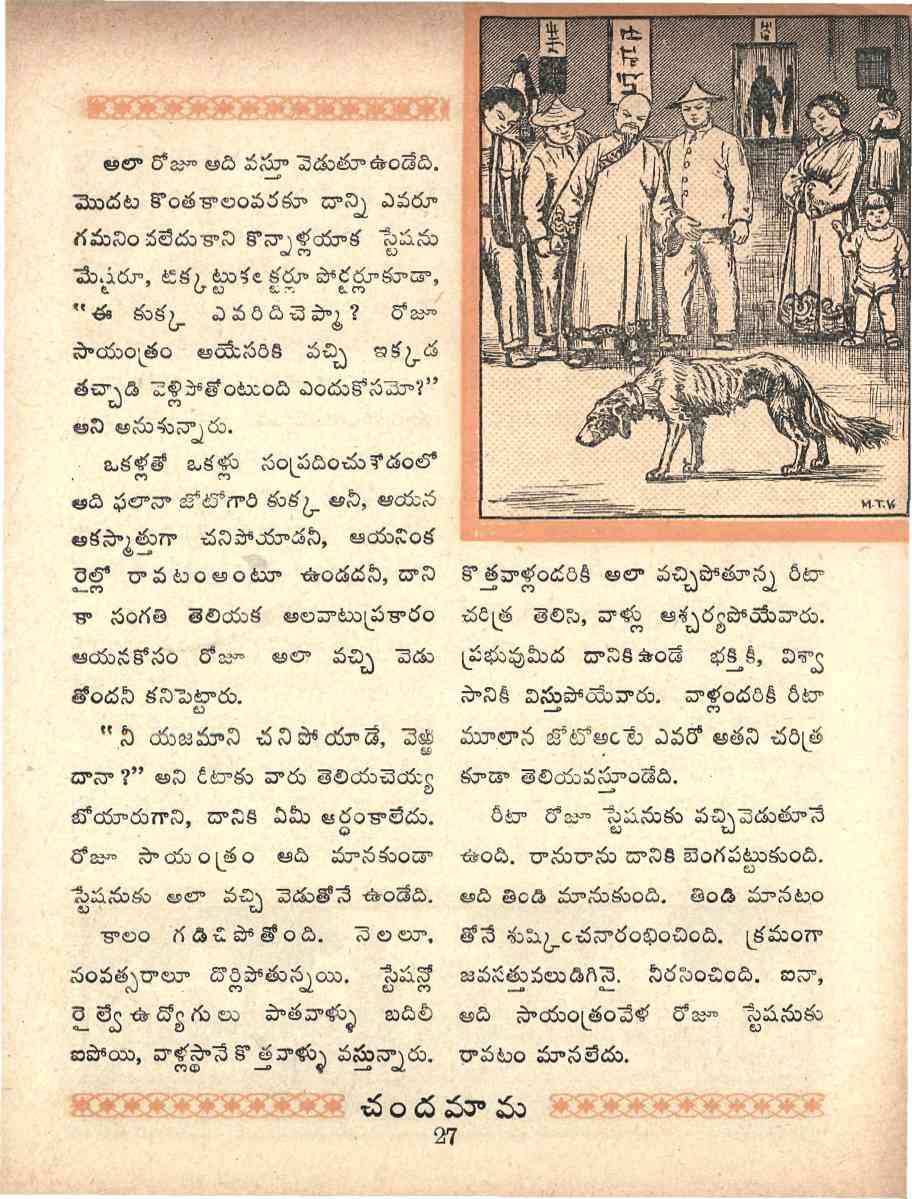 అలా రోజూ అది వస్తూ వెడుతూ ఉండేది.
మొదట కొంతకాలంవరకూ దాన్ని ఎవరూ
గమనించలేదుకాని కొన్నాళ్లయాక స్టేషను
మేష్టరూ, టిక్కట్టుకలెక్టర్లూ పోర్టర్లూకూడా,
“ఈ కుక్క ఎవరిదిచెప్మా? రోజూ
సాయంత్రం అయేసరికి వచ్చి ఇక్కడ
తచ్చాడి వెళ్లిపోతోంటుంది ఎందుకోసమో?”
అని అనుకున్నారు.
ఒకళ్లతో ఒకళ్లు సంప్రదించుకోడంలో
అది ఫలానా జోటోగారి కుక్క అనీ, ఆయన
అకస్మాత్తుగా చనిపోయాడనీ, ఆయనింక
రైల్లో రావటంఅంటూ ఉండదనీ, దాని
కా సంగతి తెలియక అలవాటుప్రకారం
ఆయనకోసం రోజూ అలా వచ్చి వెడు
తోందనీ కనిపెట్టారు.
“నీ యజమాని చనిపోయాడే, వెఱ్ఱి
దానా?” అని రీటాకు వారు తెలియచెయ్య
బోయారుగాని, దానికి ఏమీ అర్ధంకాలేదు.
రోజూ సాయంత్రం అది మానకుండా
స్టేషనుకు అలా వచ్చి వెడుతోనే ఉండేది.
కాలం గడిచిపోతోంది. నెలలూ,
సంవత్సరాలూ దొర్లిపోతున్నయి. స్టేషన్లో
రైల్వే ఉద్యోగులు పాతవాళ్ళు బదిలీ
ఐపోయి, వాళ్లస్థానే కొత్తవాళ్ళు వస్తున్నారు.
M.T.V.
కొత్తవాళ్లందరికీ అలా వచ్చిపోతూన్న రీటా
చరిత్ర తెలిసి, వాళ్లు ఆశ్చర్యపోయేవారు.
ప్రభువుమీద దానికిఉండే భక్తికీ, విశ్వా
సానికీ విస్తుపోయేవారు. వాళ్లందరికీ రీటా
మూలాన జోటోఅంటే ఎవరో అతని చరిత్ర
కూడా తెలియవస్తూండేది.
రీటా రోజూ స్టేషనుకు వచ్చివెడుతూనే
ఉంది. రానురాను దానికి బెంగపట్టుకుంది.
అది తిండి మానుకుంది. తిండి మానటం
తోనే శుష్కించనారంభించింది. క్రమంగా
జవసత్తువలుడిగినై. నీరసించింది. ఐనా,
అది సాయంత్రంవేళ రోజూ స్టేషనుకు
రావటం మానలేదు.
చందమామ
27